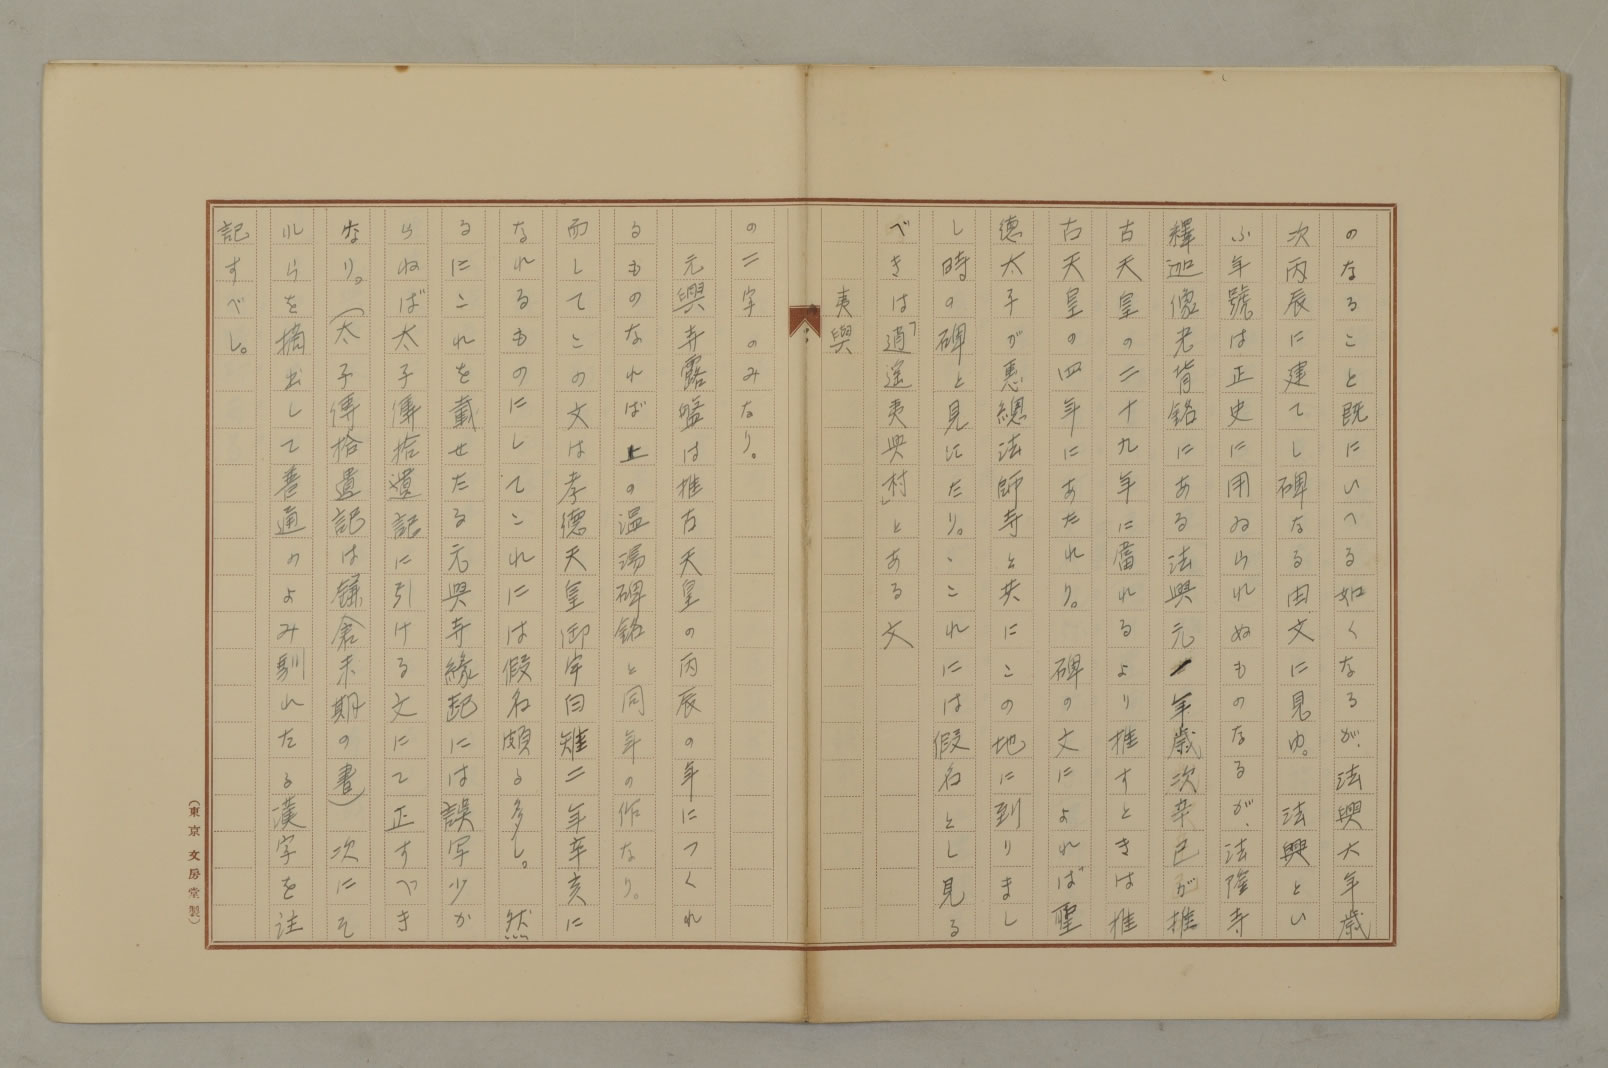 のなること既にいへる如くなるが、法興六年歳
次丙辰に建てし碑なる由文に見ゆ。法興とい
ふ年號は正史に用ゐられぬものなるが、法隆寺
釋迦像光背銘にある法興元年歳次辛巳が推
古天皇の二十九年に當れるより推すときは推
古天皇の四年にあたれり。碑の文によれば聖
德太子が惠總法師等と共にこの地に到りまし
し時の碑と見えたり。これには假名とし見る
べきは「逍遙夷與村」とある文
夷與
の二字のみなり。
元興寺露盤は推古天皇の丙辰の年につくれ
るものなれば上の温湯碑銘と同年の作なり。
而してこの文は孝德天皇御宇白雉二年辛亥に
なれるものにしてこれには假名頗る多し。然
るにこれを載せたる元興寺緣起には誤写少か
らねば太子傳拾遺記に引ける文にて正すべき
なり。(太子傳拾遺記は鎌倉末期の書)次にそ
れらを摘出して普通のよみ馴れたる漢字を註
記すべし。
(東京 文房堂製)